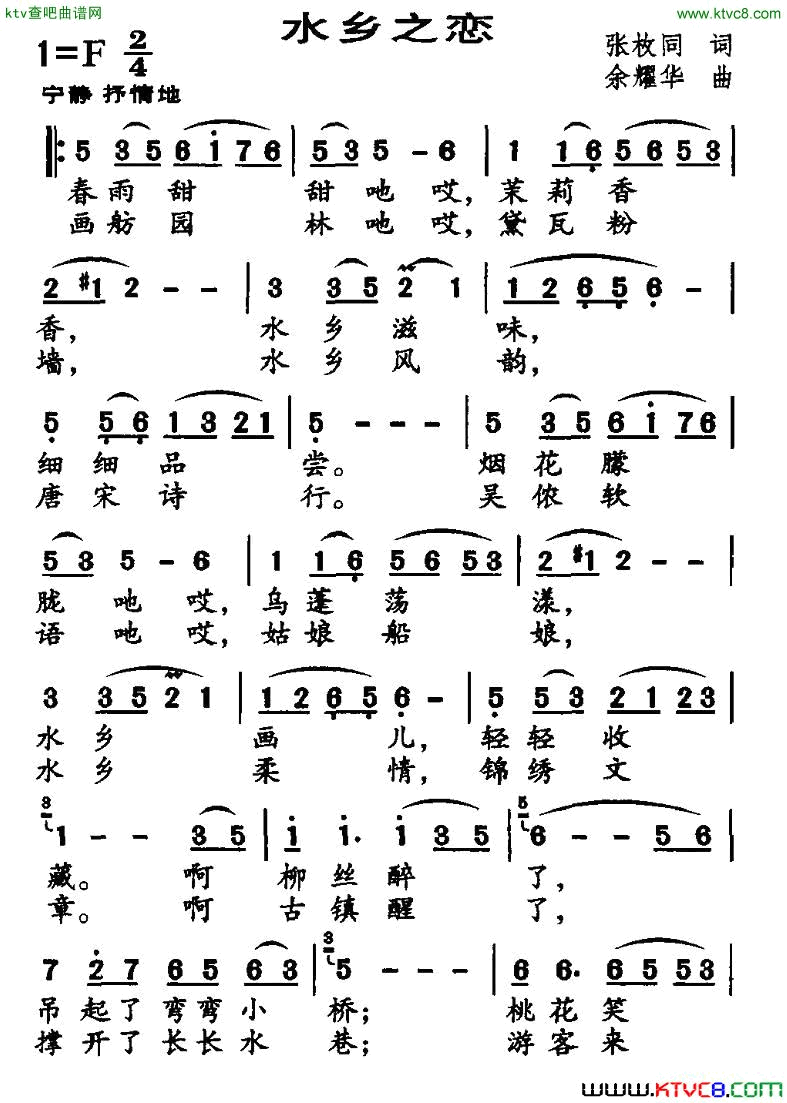 ktv查吧曲谱网
www.ktvc8.com
水乡之恋
1=F 2/4
张枚同 词
余耀华 曲
宁静 抒情地
5 3 5 6 1 7 6 5 3 5 - 6 1 1 6 5 6 5 3
春雨甜 甜吔哎,茉莉香
画舫园 林吔哎,黛瓦粉
2 #1 2 - - 3 3 5 2 1 1 2 6 5 6 -
香, 水乡滋 味,
墙, 水乡风 韵,
5 5 6 1 3 2 1 5 - - - 5 3 5 6 1 7 6
细细品 尝。 烟花朦
唐宋诗 行。 吴侬软
5 3 5 - 6 1 1 6 5 6 5 3 2 #1 2 - -
胧吔哎,乌蓬荡 漾,
语吔哎,姑娘船 娘,
3 3 5 2 1 1 2 6 5 6 - 5 5 3 2 1 2 3
水乡 画 儿,轻轻收
水乡 柔 情,锦绣文
3 1 - - 3 5 1 1. 1 3 5 5 6 - - 5 6
藏。 啊 柳丝醉 了,
章。 啊 古镇醒 了,
7 2 7 6 5 6 3 3 5 - - - 6 6. 5 6 5 3
吊起了弯弯小 桥; 桃花笑
撑开了长长水 巷; 游客来
WWW.KTVC8.COM